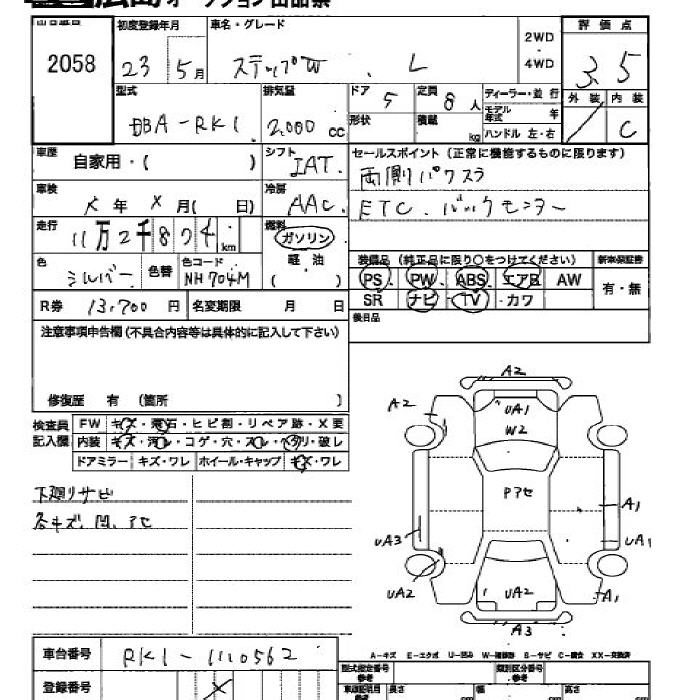 広島 オークション出品票
出品番号 初度登録年月 車名・グレード 2WD ・ 4WD 評価点
2058 23 5月 ステップW L 3.5
型式 排気量 ドア 5 定員 8人 ディーラー・並行 外装 内装
DBA-RK1 2,000 cc 形状 積載 kg モデル年式 年 C
ハンドル 左・右
車歴 自家用・( ) シフト IAT セールスポイント(正常に機能するものに限ります)
両側パワスラ
車検 年 X 月( 日) 冷房 AAC ETC.バックモニター
走行 11万2千874km 燃料 ガソリン
軽油
( )
装備品(純正品に限り○をつけてください) 新車保証書
色 シルバー 色替 色コード NH704M
PS PW ABS エアB AW 有・無
R券 13,700円 名変期限 月 日 SR ナビ TV カワ
注意事項申告欄(不具合内容等は具体的に記入して下さい) 後日品
修復歴 有 (箇所 )
検査員記入欄 FW キズ・飛石・ヒビ割・リペア跡・X要
内装 キズ・汚れ・コゲ・穴・スレ・ヘタリ・破レ
ドアミラー キズ・ワレ ホイール・キャップ キズ・ワレ
下廻りサビ
各キズ、凹、アセ
A2
A2 UA1
W2
Pアセ
A1
UA3 UA1
UA2 UA2 A1
A3
A-キズ E-エクボ U-凹み W-補修跡 S-サビ C-腐食 XX-交換済
車台番号 RK1-1110562
登録番号 X
型式指定番号 参考 類別区分番号 参考
長さ cm 幅 cm 高さ cm